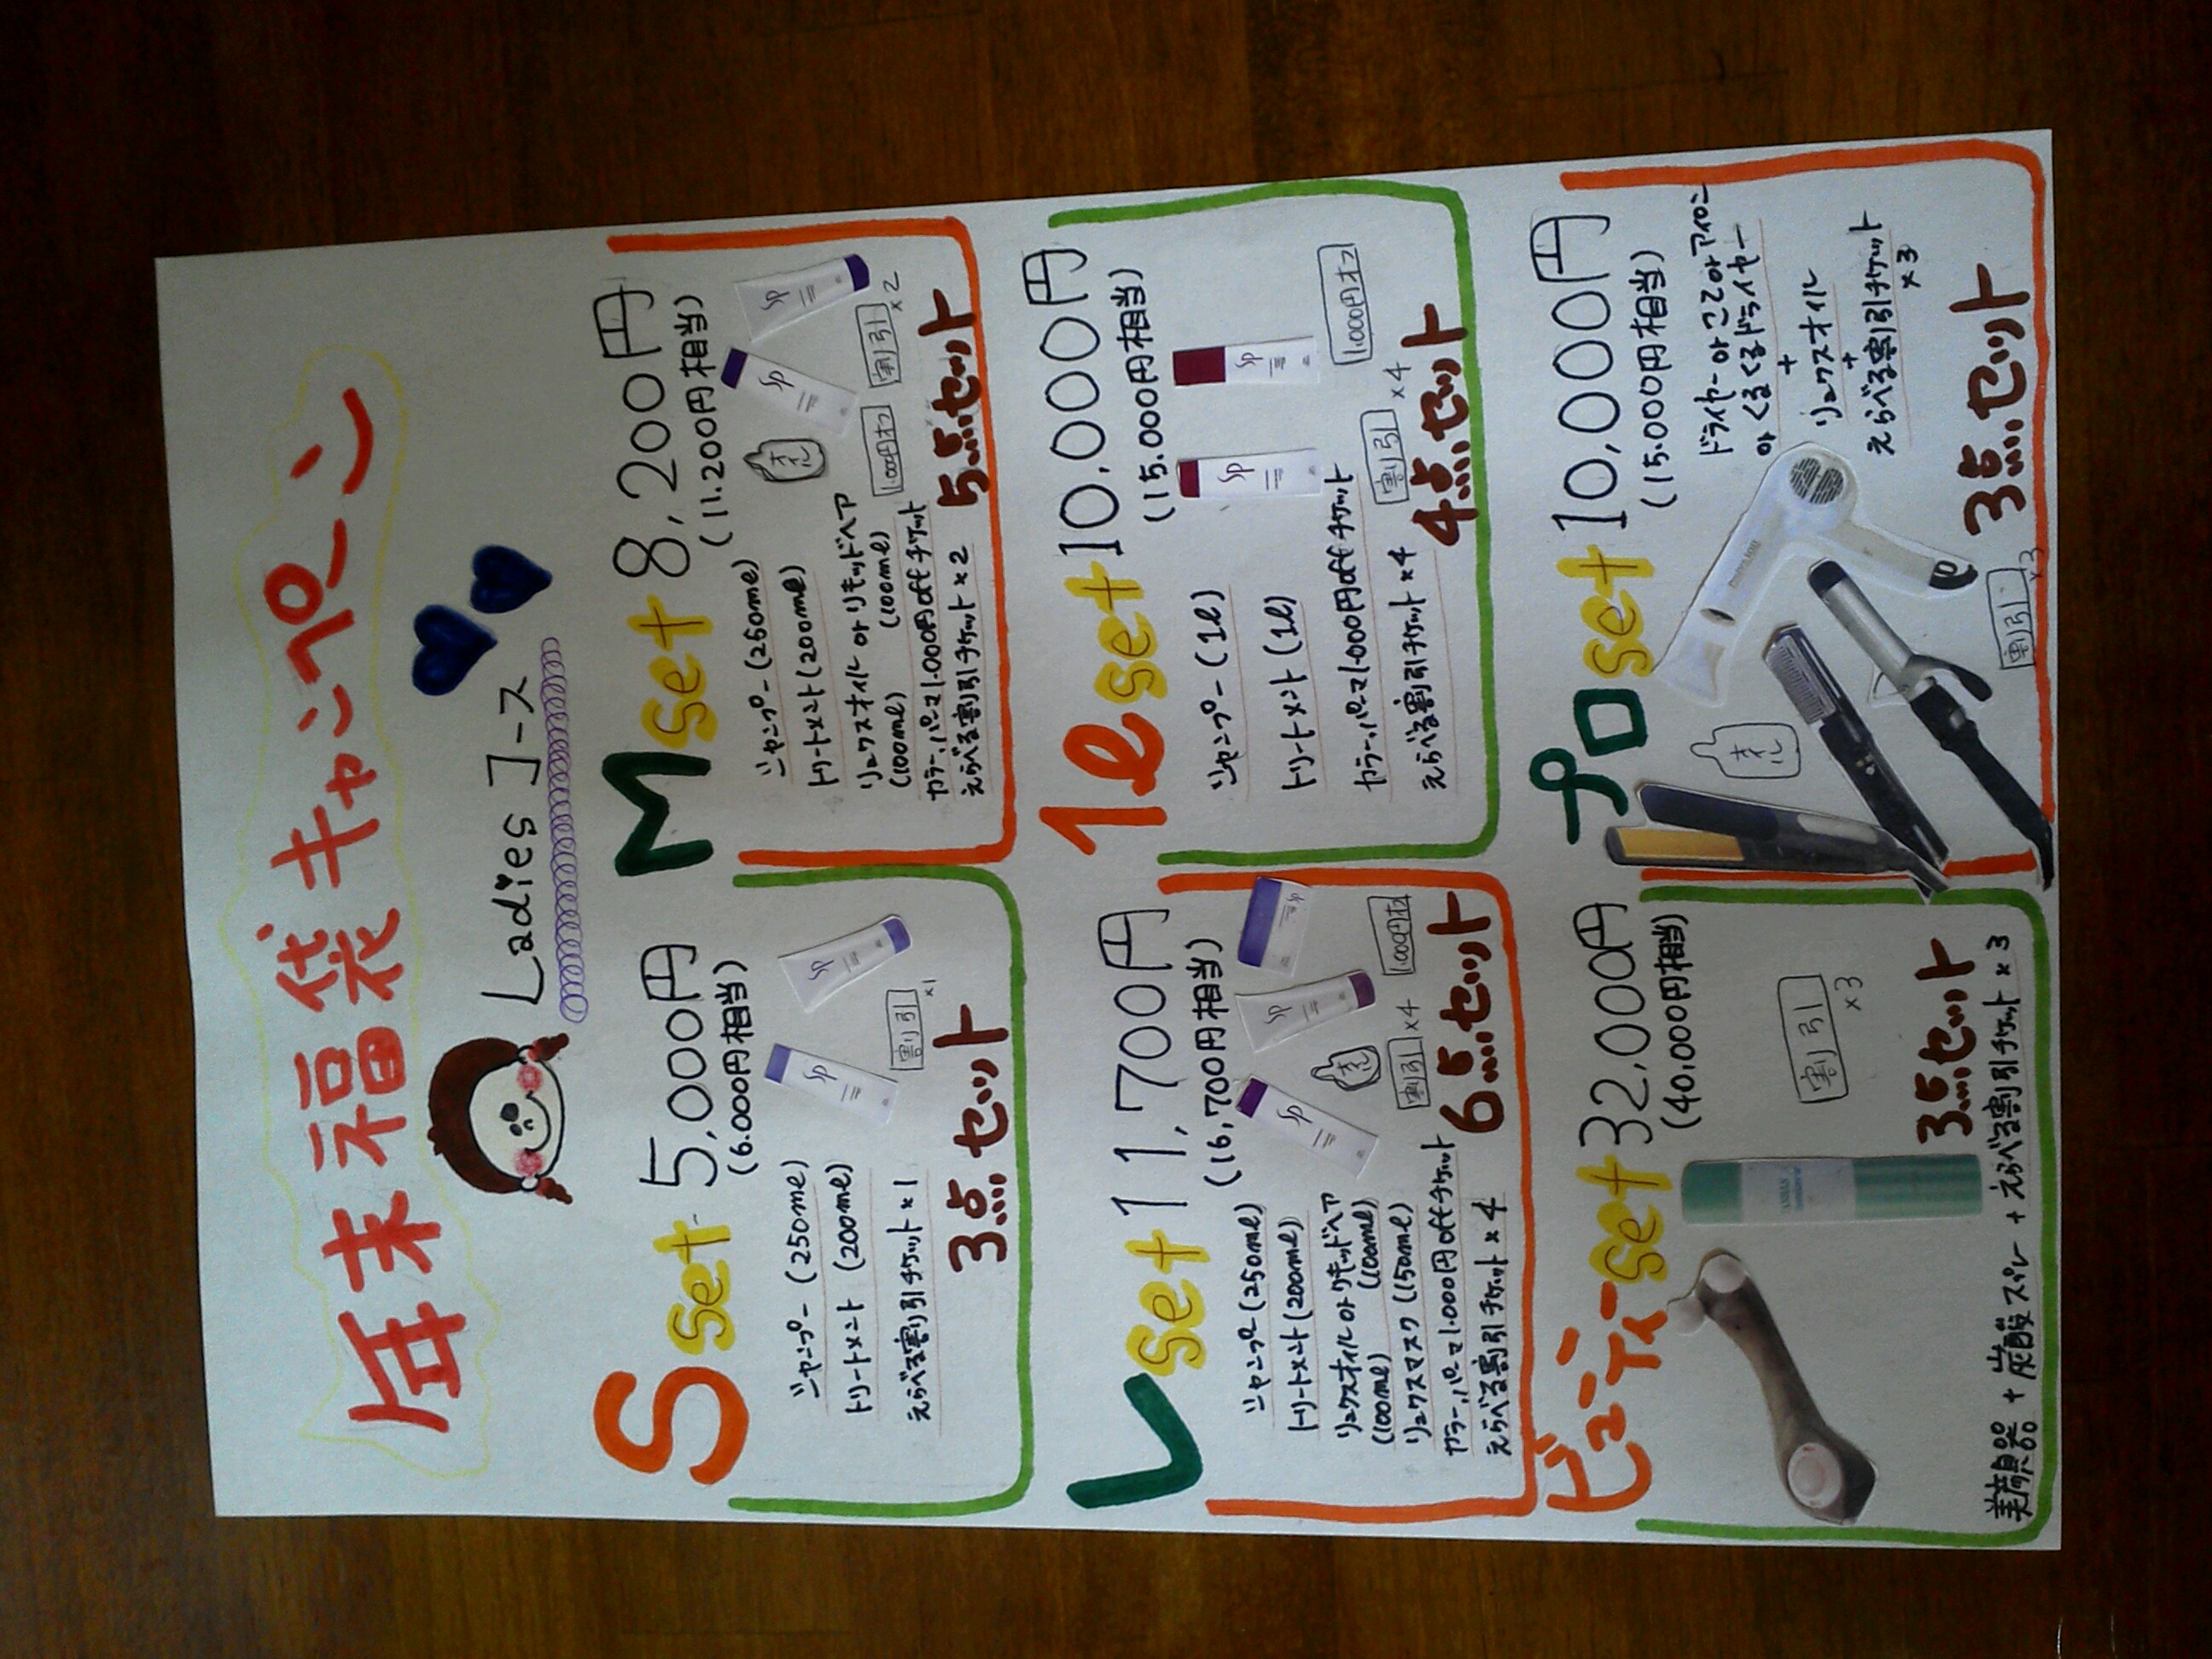 年末福袋キャンペーン
Ladies コース
S set 5,000円
(6.000円相当)
シャンプー (250ml)
トリートメント (200ml)
えらべる割引チケット×1
sp
sp
割引
×1
3点セット
M set 8,200円
(11.200円相当)
シャンプー (250ml)
トリートメント (200ml)
リュクスオイル or リモッドヘア
(100ml) (100ml)
カラー、パーマ1.000円offチケット
えらべる割引チケット×2
オイル
sp
sp
1.000円オフ
割引
×2
5点セット
L set 11,700円
(16,700円相当)
シャンプー (250ml)
トリートメント (200ml)
リュクスオイル or リモッドヘア
(100ml) (100ml)
リュクスマスク (150ml)
カラー、パーマ1.000円offチケット
えらべる割引チケット×4
sp
オイル
sp
sp
割引
×4
1.000円オフ
6点セット
1l set 10,000円
(15.000円相当)
シャンプー (1l)
トリートメント (1l)
カラー、パーマ1.000円offチケット
えらべる割引チケット×4
sp
sp
割引
×4
1.000円オフ
4点セット
ビューティー set 32,000円
(40,000円相当)
割引
×3
3点セット
美顔器 + 炭酸スプレー + えらべる割引チケット×3
プロ set 10,000円
(15.000円相当)
ドライヤー or こて or アイロン
or くるくるドライヤー
+
リュクスオイル
+
えらべる割引チケット
×3
オイル
割引
×3
3点セット